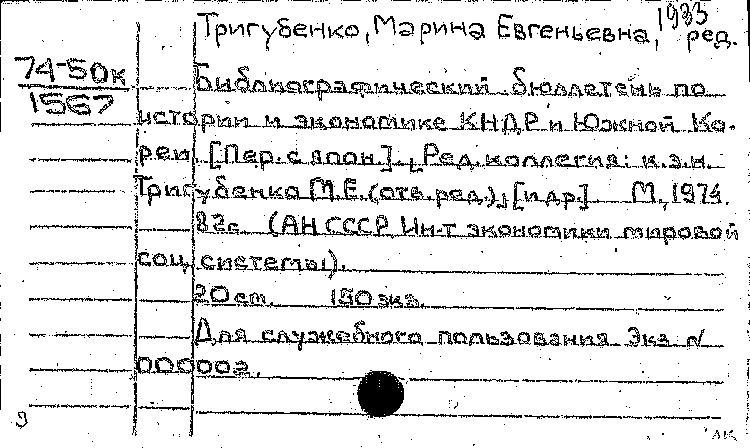 1933
Тригубенко, Марина Евгеньевна, ред.
74-50к
1567
Библиографический бюллетень по
истории и экономике КНДР и Южной Ко-
реи. [Пер. с япон.]. [Ред. коллегия: к.э.н.
Тригубенко М.Е. (отв. ред.), [и др.] М., 1974.
82с. (АН СССР Ин-т экономики мировой
соц. системы).
20 см. 150 экз.
Для служебного пользования Экз. N
000002.
9